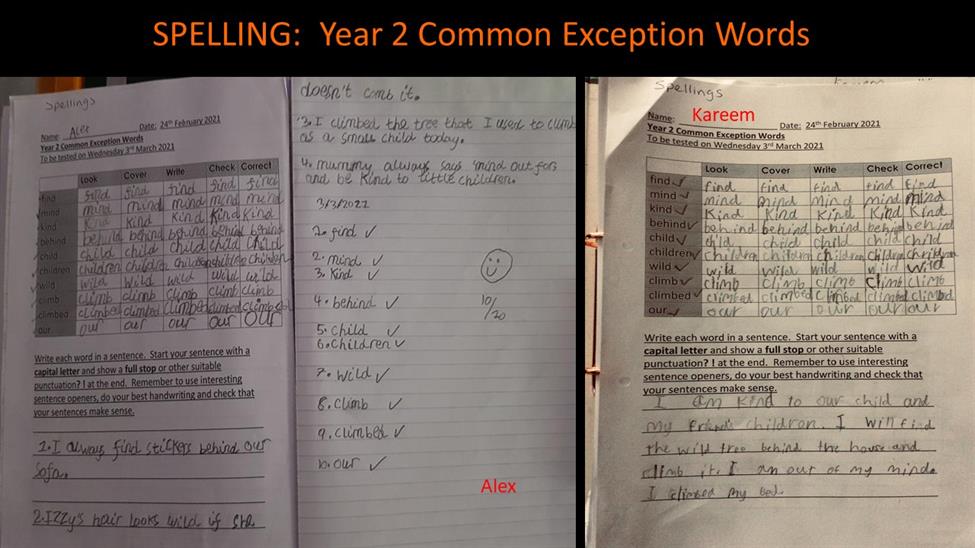 SPELLING: Year 2 Common Exception Words
Spellings
Name: Alex Date: 24th February 2021
Year 2 Common Exception Words
To be tested on Wednesday 3rd March 2021
Look Cover Write Check Correct
find find find find find find
mind mind mind mind mind mind
kind kind kind kind kind kind
behind behind behind behind behind behind
child child child child child child
children children children children children children
wild wild wild wild wild wild
climb climb climb climb climb climb
climbed climbed climbed climbed climbed climbed
our our our our our our
Write each word in a sentence. Start your sentence with a
capital letter and show a full stop or other suitable
punctuation? ! at the end. Remember to use interesting
sentence openers, do your best handwriting and check that
your sentences make sense.
1. I always find stickers behind our
sofa.
2. IZZy's hair looks wild if she
doesn't comb it.
3. I climbed the tree that I used to climb
as a small child today.
4. mummy always says mind out for
and be kind to little children.
3/3/2021
1. find ✓
2. mind ✓
3. kind ✓
4. behind ✓
10/20
5. child ✓
6. children ✓
7. wild ✓
8. climb ✓
9. climbed ✓
10. our ✓
Alex
Spellings
Name: Kareem Date: 24th February 2021
Year 2 Common Exception Words
To be tested on Wednesday 3rd March 2021
Look Cover Write Check Correct
find ✓ find find find find find
mind ✓ mind mind mind mind mind
kind ✓ kind kind kind kind kind
behind ✓ behind behind behind behind behind
child ✓ child child child child child
children ✓ children children children children children
wild ✓ wild wild wild wild wild
climb ✓ climb climb climb climb climb
climbed ✓ climbed climbed climbed climbed climbed
our ✓ our our our our our
Write each word in a sentence. Start your sentence with a
capital letter and show a full stop or other suitable
punctuation? ! at the end. Remember to use interesting
sentence openers, do your best handwriting and check that
your sentences make sense.
I am kind to our child and
my friends children. I will find
the wild tree behind the house and
climb it. I am out of my mind.
I climbed my bed.